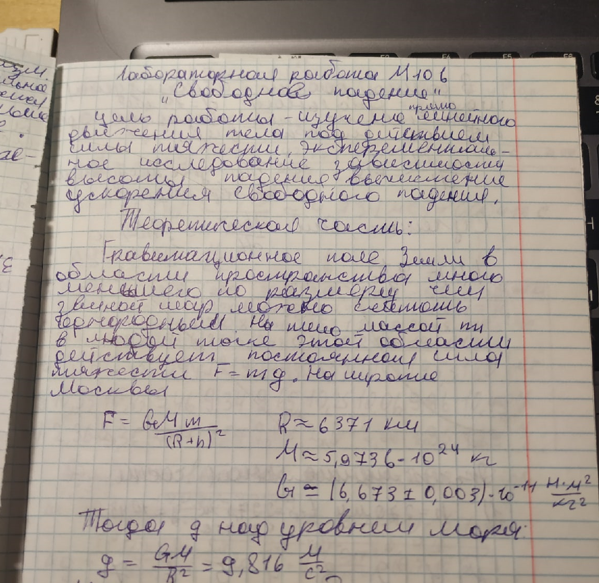 Лабораторная работа М106
"Свободное падение"
Цель работы - изучение прямолинейного
движения тела под действием
силы тяжести, эксперименталь-
ное исследование зависимости
высоты падения, вычисление
ускорения свободного падения.
Теоретическая часть:
Гравитационное поле Земли в
области пространства много
меньшего по размеру чем
земной шар можно считать
однородным. На тело массой m
в любой точке этой области
действует постоянная сила
тяжести F = mg. На широте
Москвы
F = GMm/(R+h)² R ≈ 6371 км
M ≈ 5,9736 · 10²⁴ кг
G = (6,673 ± 0,003) · 10⁻¹¹ Н·м²/кг²
Тогда g над уровнем моря:
g = GM/R² = 9,816 м/с²